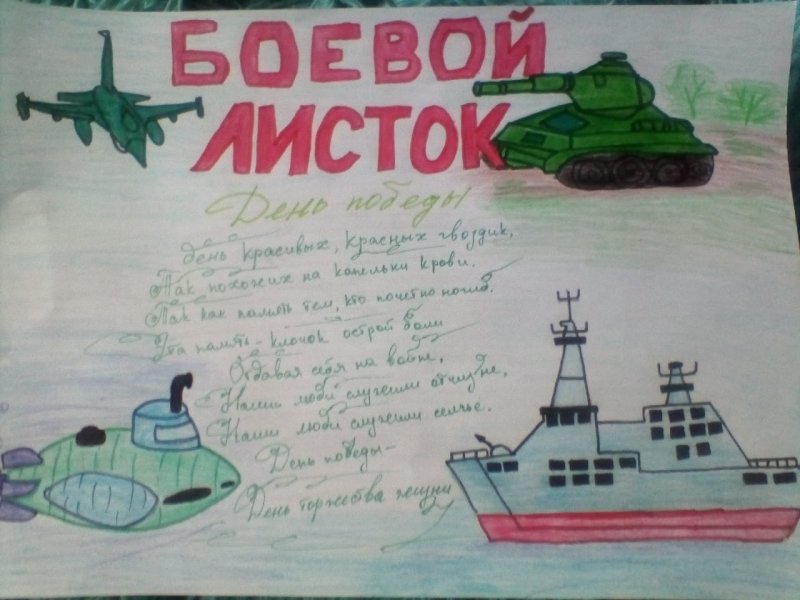 БОЕВОЙ
ЛИСТОК
День победы
День красивых, красных гвоздик,
Так похожих на капельки крови.
Так как память тем, кто почетно погиб.
Эта память - клочок острой боли
Отдавая себя на войне,
Наши люди служили отчизне,
Наши люди служили семье.
День победы -
День торжества жизни